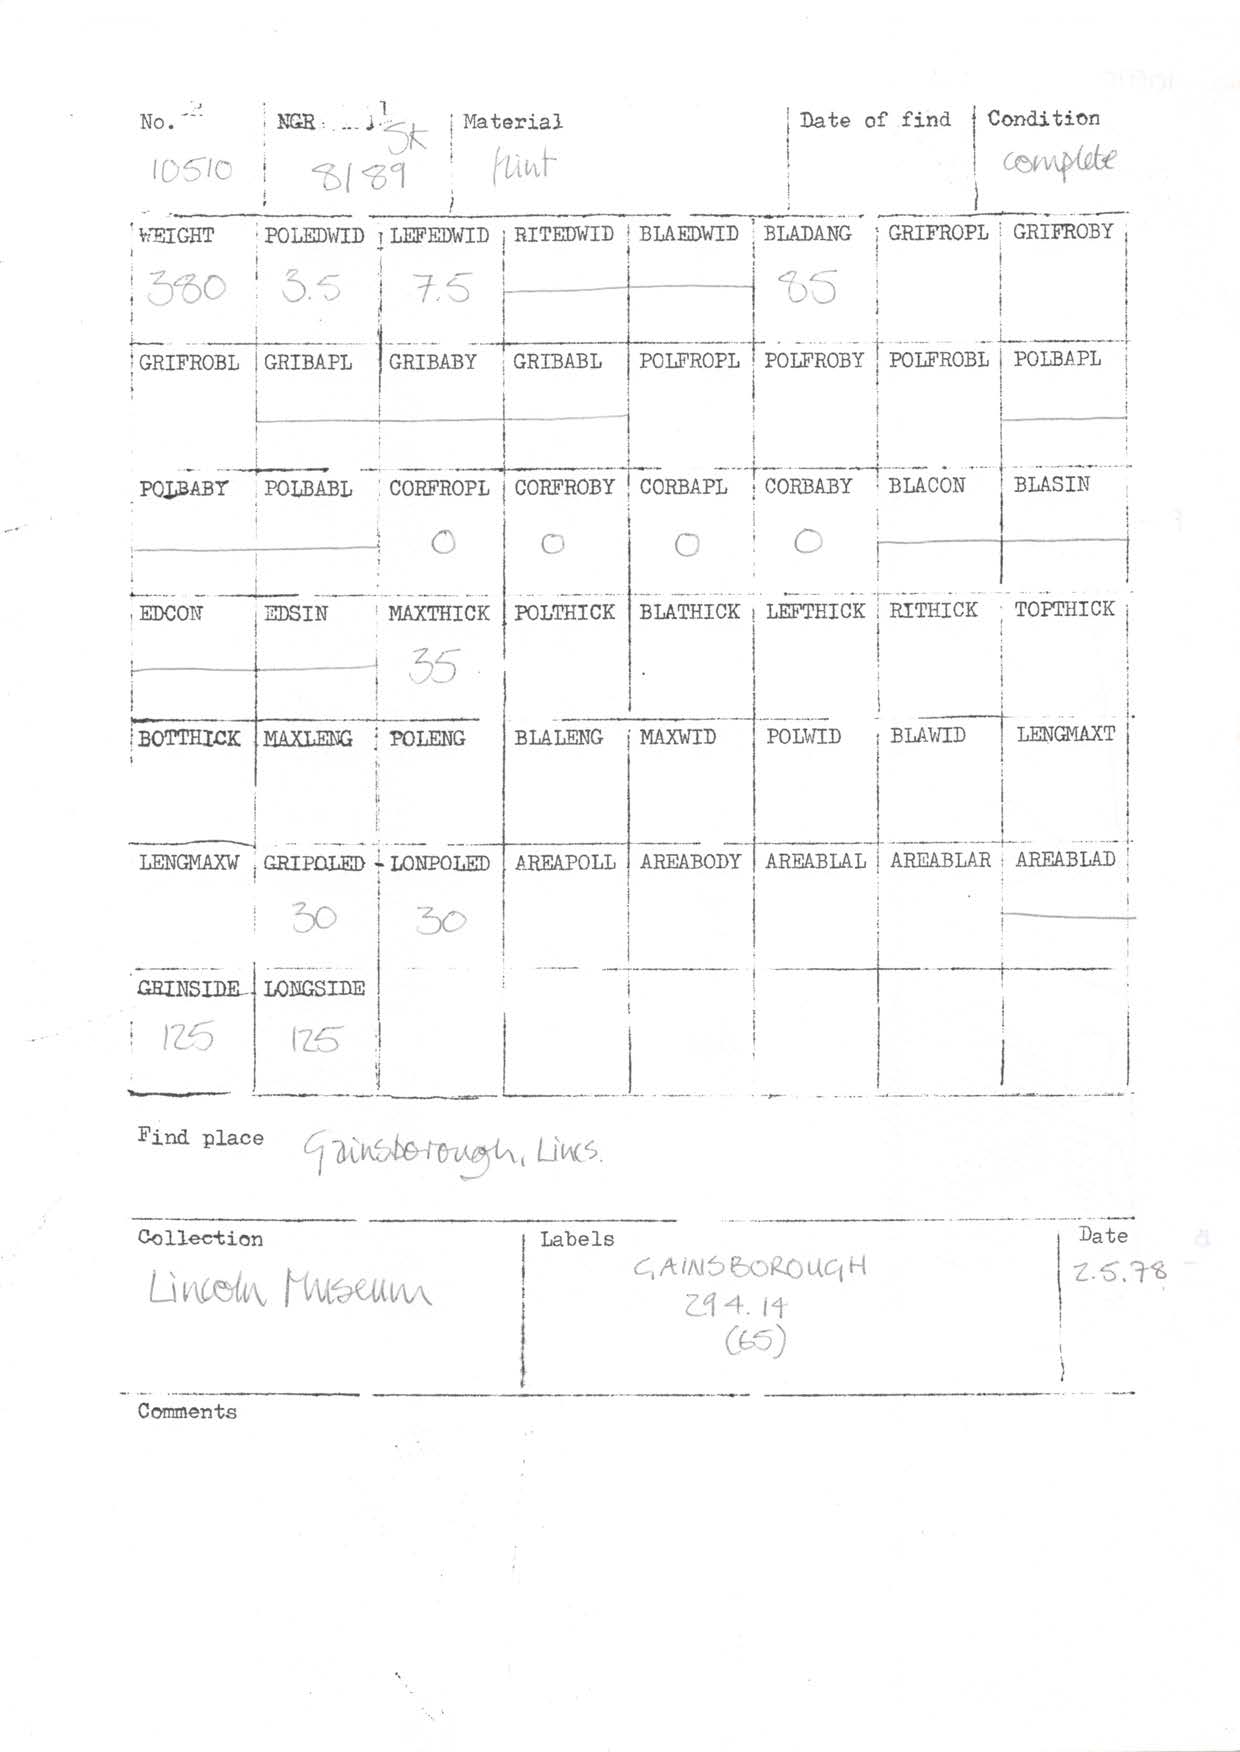 No. NGR Material Date of find Condition
10510 SK 8189 flint complete
WEIGHT POLEDWID LEFEDWID RITEDWID BLAEDWID BLADANG GRIFROPL GRIFROBY
380 3.5 7.5 85
GRIFROBL GRIBAPL GRIBABY GRIBABL POLFROPL POLFROBY POLFROBL POLBAPL
POLBABY POLBABL CORFROPL CORFROBY CORBAPL CORBABY BLACON BLASIN
0 0 0 0
EDCON EDSIN MAXTHICK POLTHICK BLATHICK LEFTHICK RITHICK TOPTHICK
35
BOTTHICK MAXLENG POLENG BLALENG MAXWID POLWID BLAWID LENGMAXT
LENGMAXW GRIPOLED LONPOLED AREAPOLL AREABODY AREABLAL AREABLAR AREABLAD
30 30
GRINSIDE LONGSIDE
125 125
Find place Gainsborough, Lincs.
Collection Labels Date
Lincoln Museum GAINSBOROUGH 2.5.78
294.14
(65)
Comments